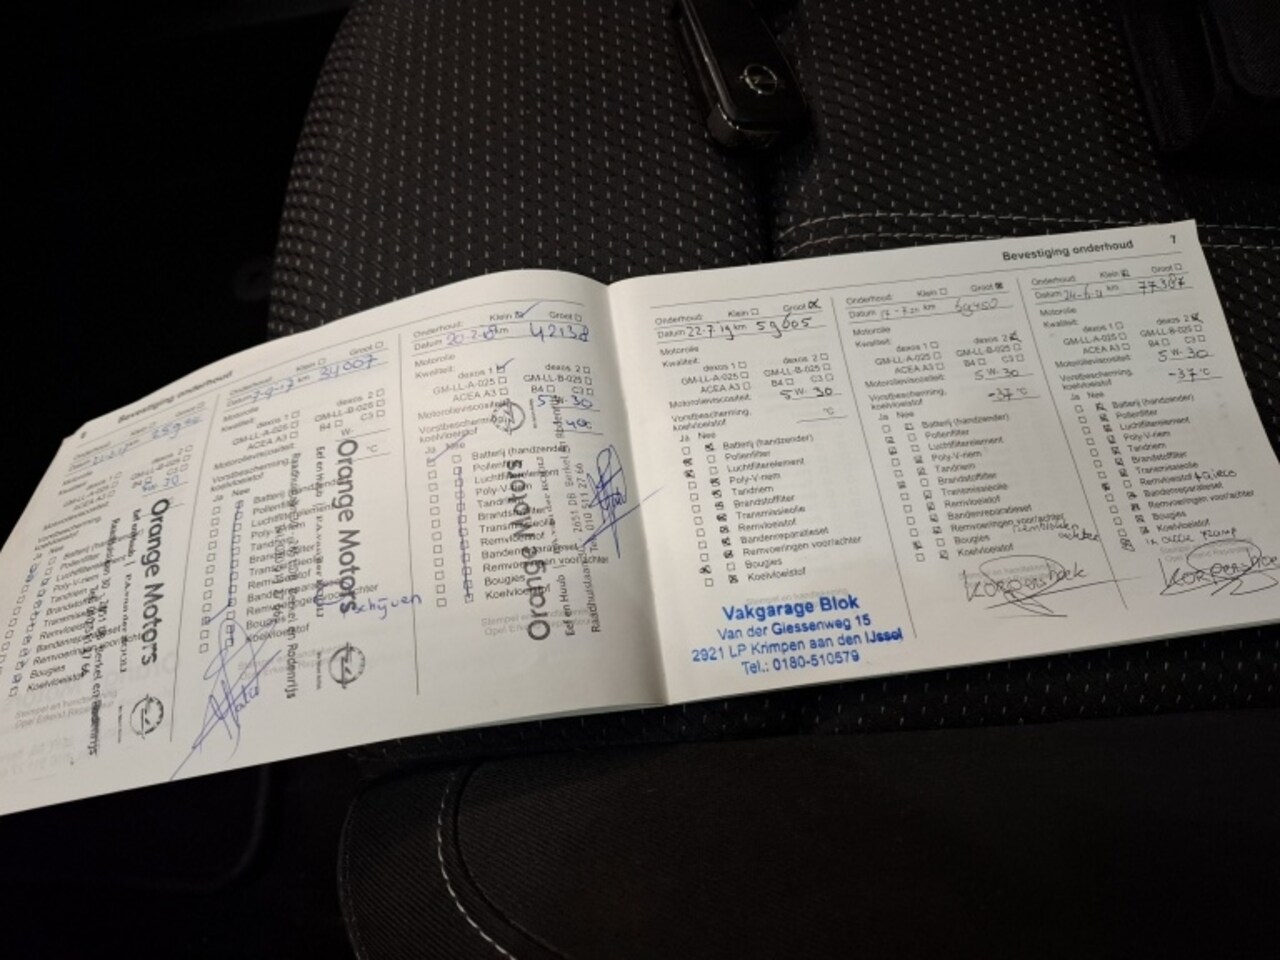 6 Bevestiging onderhoud
Onderhoud: Klein Groot
Datum km
Motorolie
Kwaliteit: dexos 1 dexos 2
GM-LL-A-025 GM-LL-B-025
ACEA A3 B4 C3
Vorstbescherming
koelvloeistof
Ja Nee
Batterij (handzender)
Pollenfilter
Luchtfilterelement
Poly-V-riem
Tandriem
Brandstoffilter
Transmissieolie
Remvloeistof
Bandenreparatieset
Remvoeringen voor/achter
Bougies
Koelvloeistof
Orange Motors
Onderhoud: Klein Groot
Datum km 34007
Motorolie
Kwaliteit: dexos 1 dexos 2
GM-LL-A-025 GM-LL-B-025
ACEA A3 B4 C3
Motorolieviscositeit: W- °C
Vorstbescherming
koelvloeistof
Ja Nee
Batterij (handzender)
Pollenfilter
Luchtfilterelement
Poly-V-riem
Tandriem
Brandstoffilter
Transmissieolie
Remvloeistof
Bandenreparatieset
Remvoeringen voor/achter
schijven
Bougies
Koelvloeistof
Orange Motors
Onderhoud: Klein Groot
Datum 20-2-18 km 42138
Motorolie
Kwaliteit: dexos 1 dexos 2
GM-LL-A-025 GM-LL-B-025
ACEA A3 B4 C3
Motorolieviscositeit 5 W- 30
Vorstbescherming
koelvloeistof
Ja Nee
Batterij (handzender)
Pollenfilter
Luchtfilterelement
Poly-V-riem
Tandriem
Brandstoffilter
Transmissieolie
Remvloeistof
Bandenreparatieset
Remvoeringen voor/achter
Bougies
Koelvloeistof
Orange Motors
Bevestiging onderhoud 7
Onderhoud: Klein Groot
Datum 22-7-19 km 59605
Motorolie
Kwaliteit: dexos 1 dexos 2
GM-LL-A-025 GM-LL-B-025
ACEA A3 B4 C3
Motorolieviscositeit: 5 W- 30
Vorstbescherming °C
koelvloeistof
Ja Nee
Batterij (handzender)
Pollenfilter
Luchtfilterelement
Poly-V-riem
Tandriem
Brandstoffilter
Transmissieolie
Remvloeistof
Bandenreparatieset
Remvoeringen voor/achter
Bougies
Koelvloeistof
Vakgarage Blok
Van der Giessenweg 15
2921 LP Krimpen aan den IJssel
Tel.: 0180-510579
Onderhoud: Klein Groot
Datum km
Motorolie
Kwaliteit: dexos 1 dexos 2
GM-LL-A-025 GM-LL-B-025
ACEA A3 B4 C3
Motorolieviscositeit: 5 W- 30
Vorstbescherming -37 °C
koelvloeistof
Ja Nee
Batterij (handzender)
Pollenfilter
Luchtfilterelement
Poly-V-riem
Tandriem
Brandstoffilter
Transmissieolie
Remvloeistof
Bandenreparatieset
Remvoeringen voor/achter
Bougies
Koelvloeistof
Onderhoud: Klein Groot
Datum km 77387
Motorolie
Kwaliteit: dexos 1 dexos 2
GM-LL-A-025 GM-LL-B-025
ACEA A3 B4 C3
Motorolieviscositeit: 5 W- 30
Vorstbescherming -37 °C
koelvloeistof
Ja Nee
Batterij (handzender)
Pollenfilter
Luchtfilterelement
Poly-V-riem
Tandriem
Brandstoffilter
Transmissieolie
Remvloeistof
Bandenreparatieset
Remvoeringen voor/achter
Bougies
Koelvloeistof